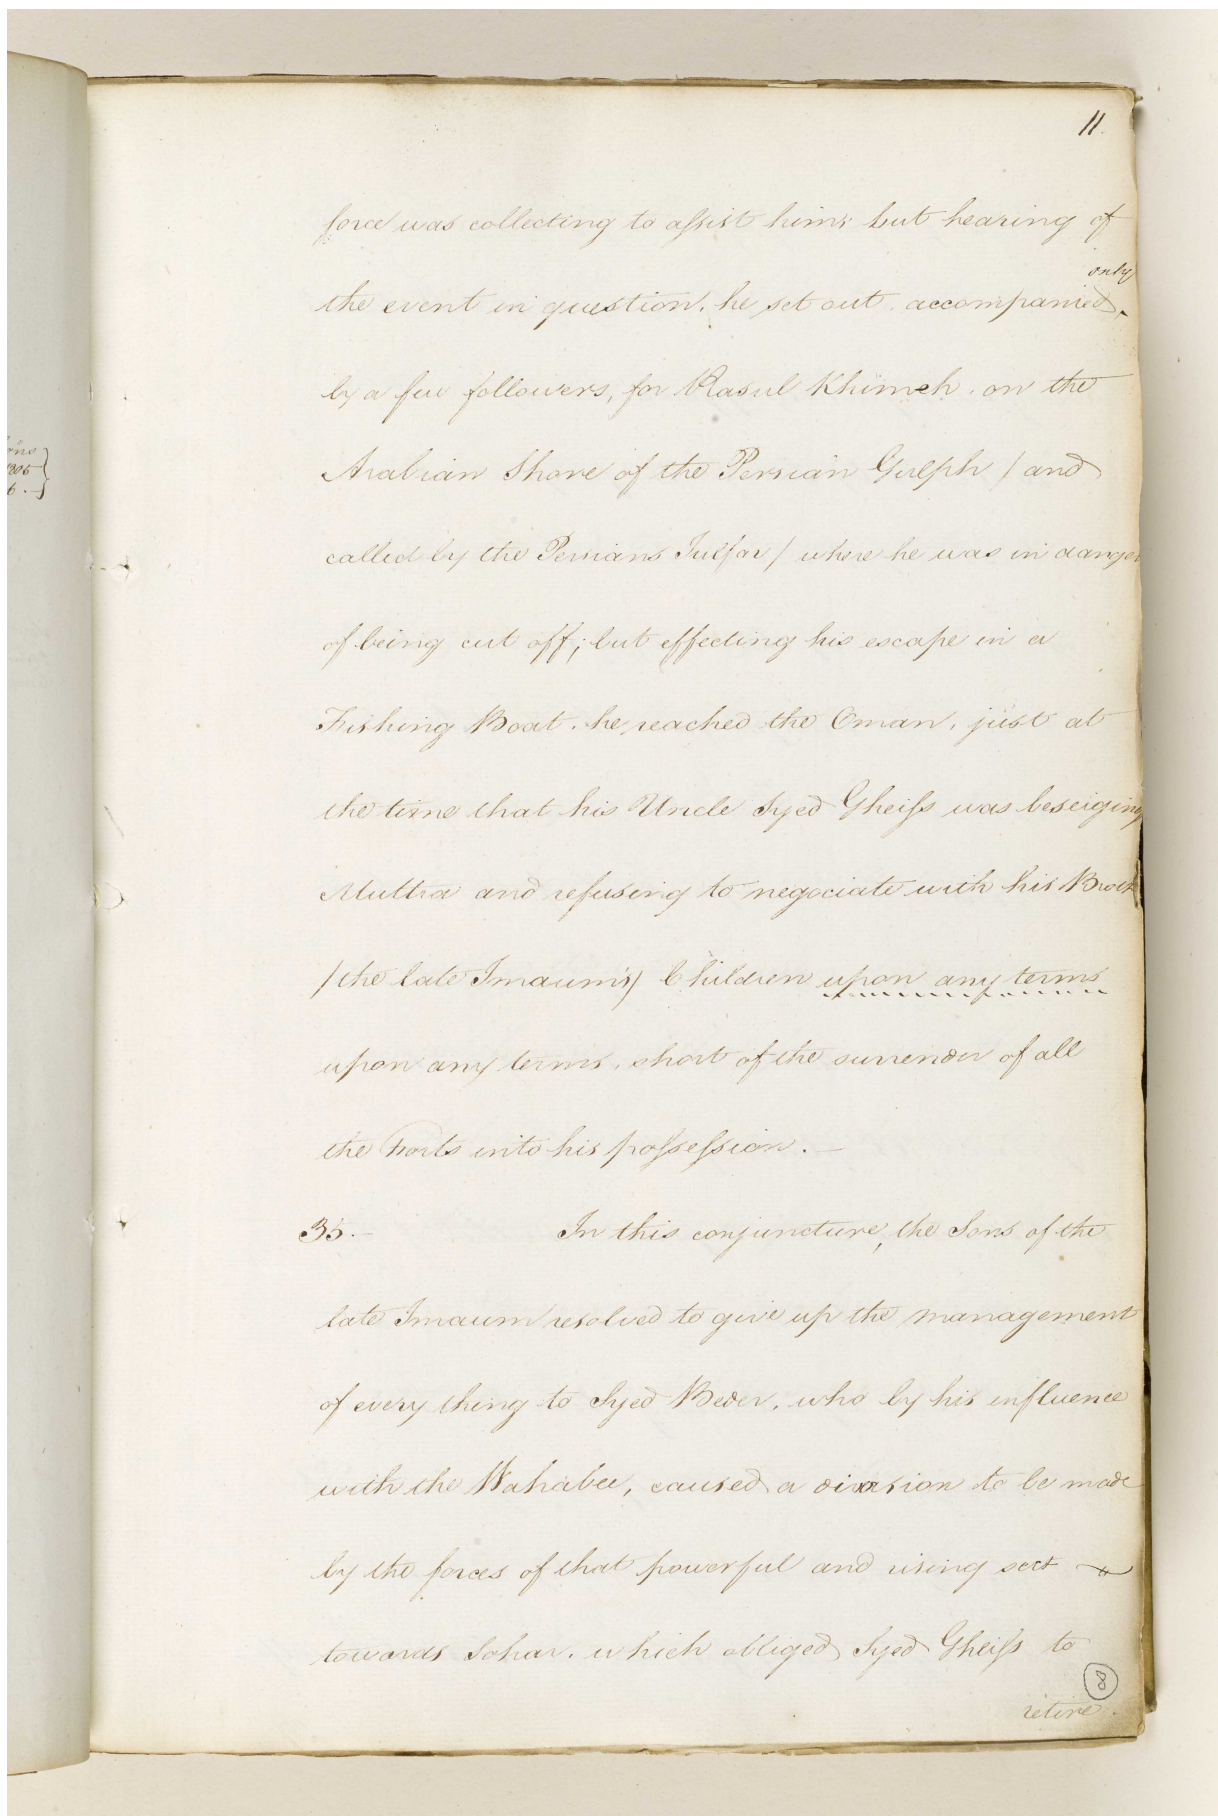 11.
force was collecting to assist him; but hearing of
only
the event in question, he set out, accompanied,
by a few followers, for Rasul Khimeh, on the
Arabian Shore of the Persian Gulph / and
called by the Persians Julfar / where he was in danger
of being cut off; but effecting his escape in a
Fishing Boat, he reached the Oman, just at
the time that his Uncle Syed Gheiss was beseiging
Muttra and refusing to negociate with his
/ the late Imaum's / Children upon any terms
upon any terms, short of the surrender of all
the Forts into his possession. —
35. — In this conjuncture, the Sons of the
late Imaum resolved to give up the management
of every thing to Syed Beder, who by his influence
with the Wahabee, caused a diversion to be made
by the forces of that powerful and rising sect
towards Sohar, which obliged Syed Gheiss to
8
retire.